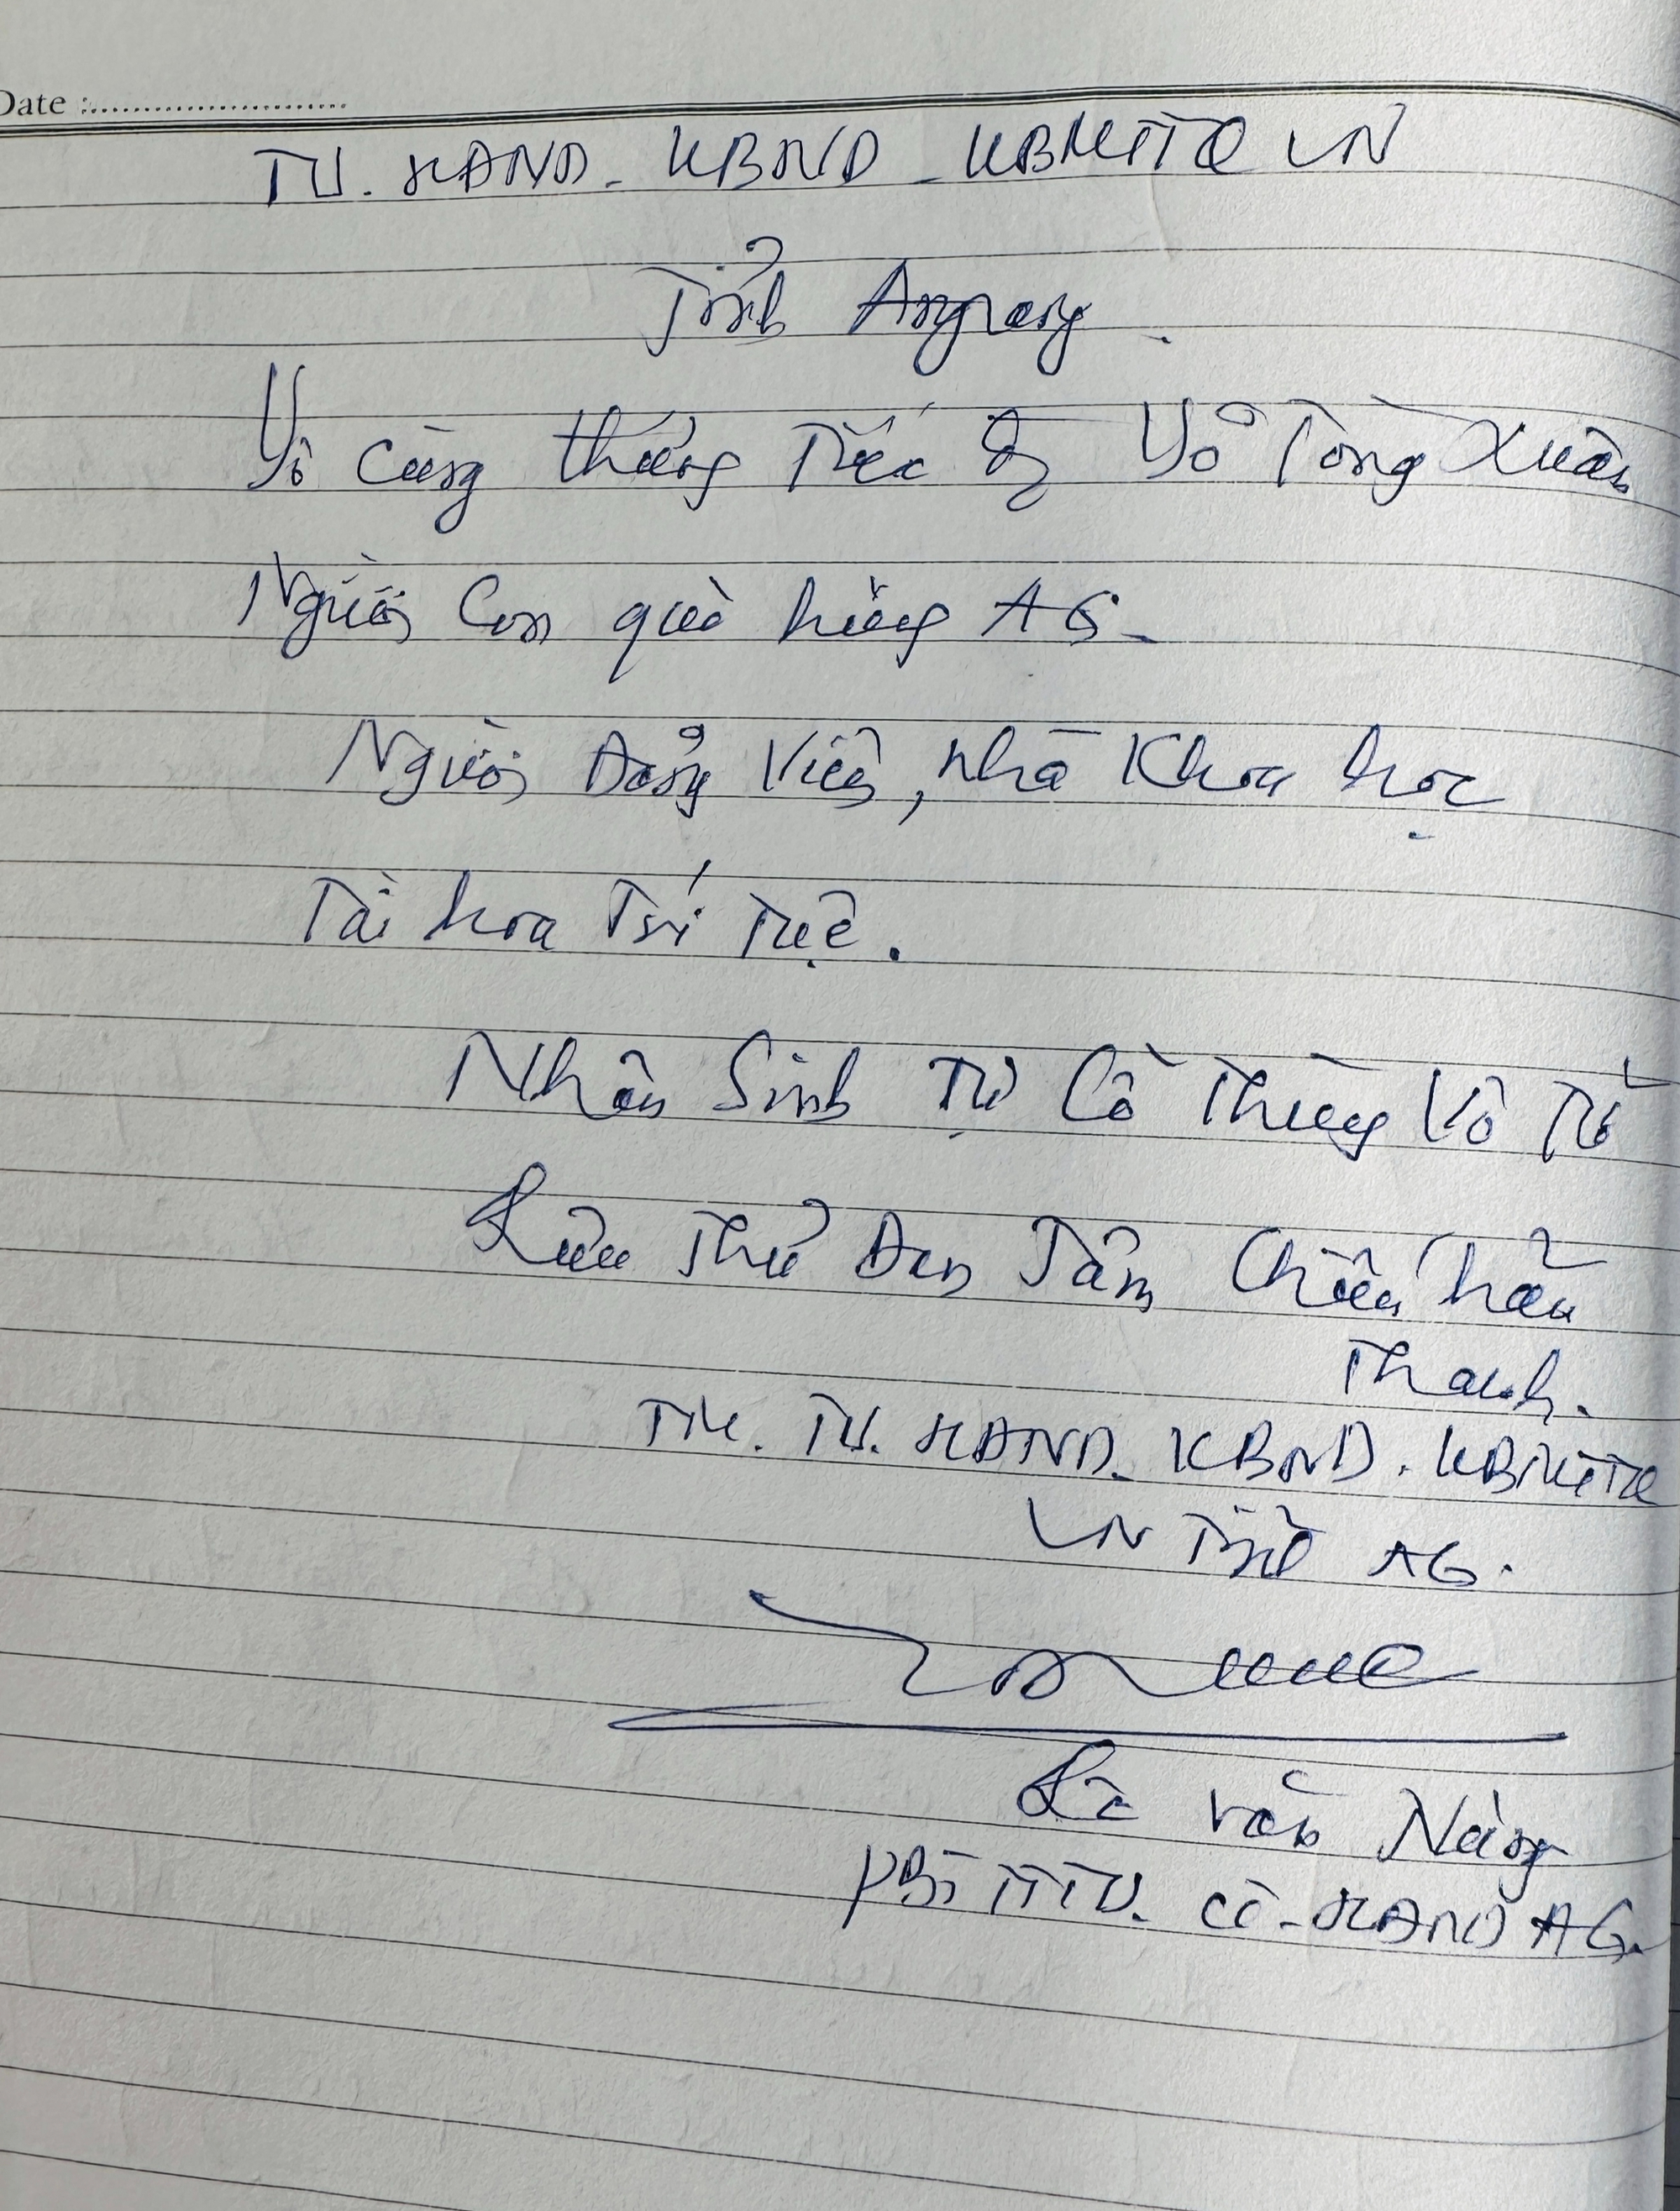 Date :
TU. HĐND - UBND - UBMTTQ VN
Tỉnh Angiang.
Vô cùng thương Tiếc Ô Võ Tòng Xuân
Người Con quê hương AG -
Người Đảng Viên, nhà Khoa học
Tài hoa Trí Tuệ.
Nhân Sinh Tự Cổ Thùy Vô Tử
Lưu Thủ Đan Tâm Chiếu hãn
Thanh.
TM. TU. HĐND. UBND. UBMTTQ
VN Tỉnh AG.
Lê văn Nưng
PBí TTTU. CT-HĐND AG.